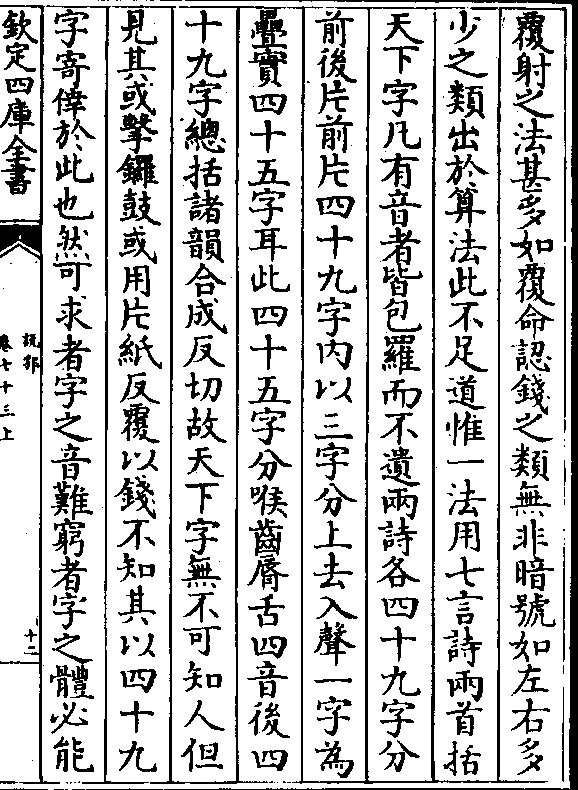 覆射之法甚多如覆命認錢之類無非暗號如左右多
少之類出於算法此不足道惟一法用七言詩兩首括
天下字凡有音者皆包羅而不遺兩詩各四十九字分
前後片前片四十九字内以三字分上去入聲一字為
疊實四十五字耳此四十五字分喉齒脣舌四音後四
十九字總括諸韻合成反切故天下字無不可知人但
見其或擊鑼鼓或用片紙反覆以錢不知其以四十九
字寄偉於此也然可求者字之音難窮者字之體必能
欽定四庫全書
說郛
卷七十三上
十二